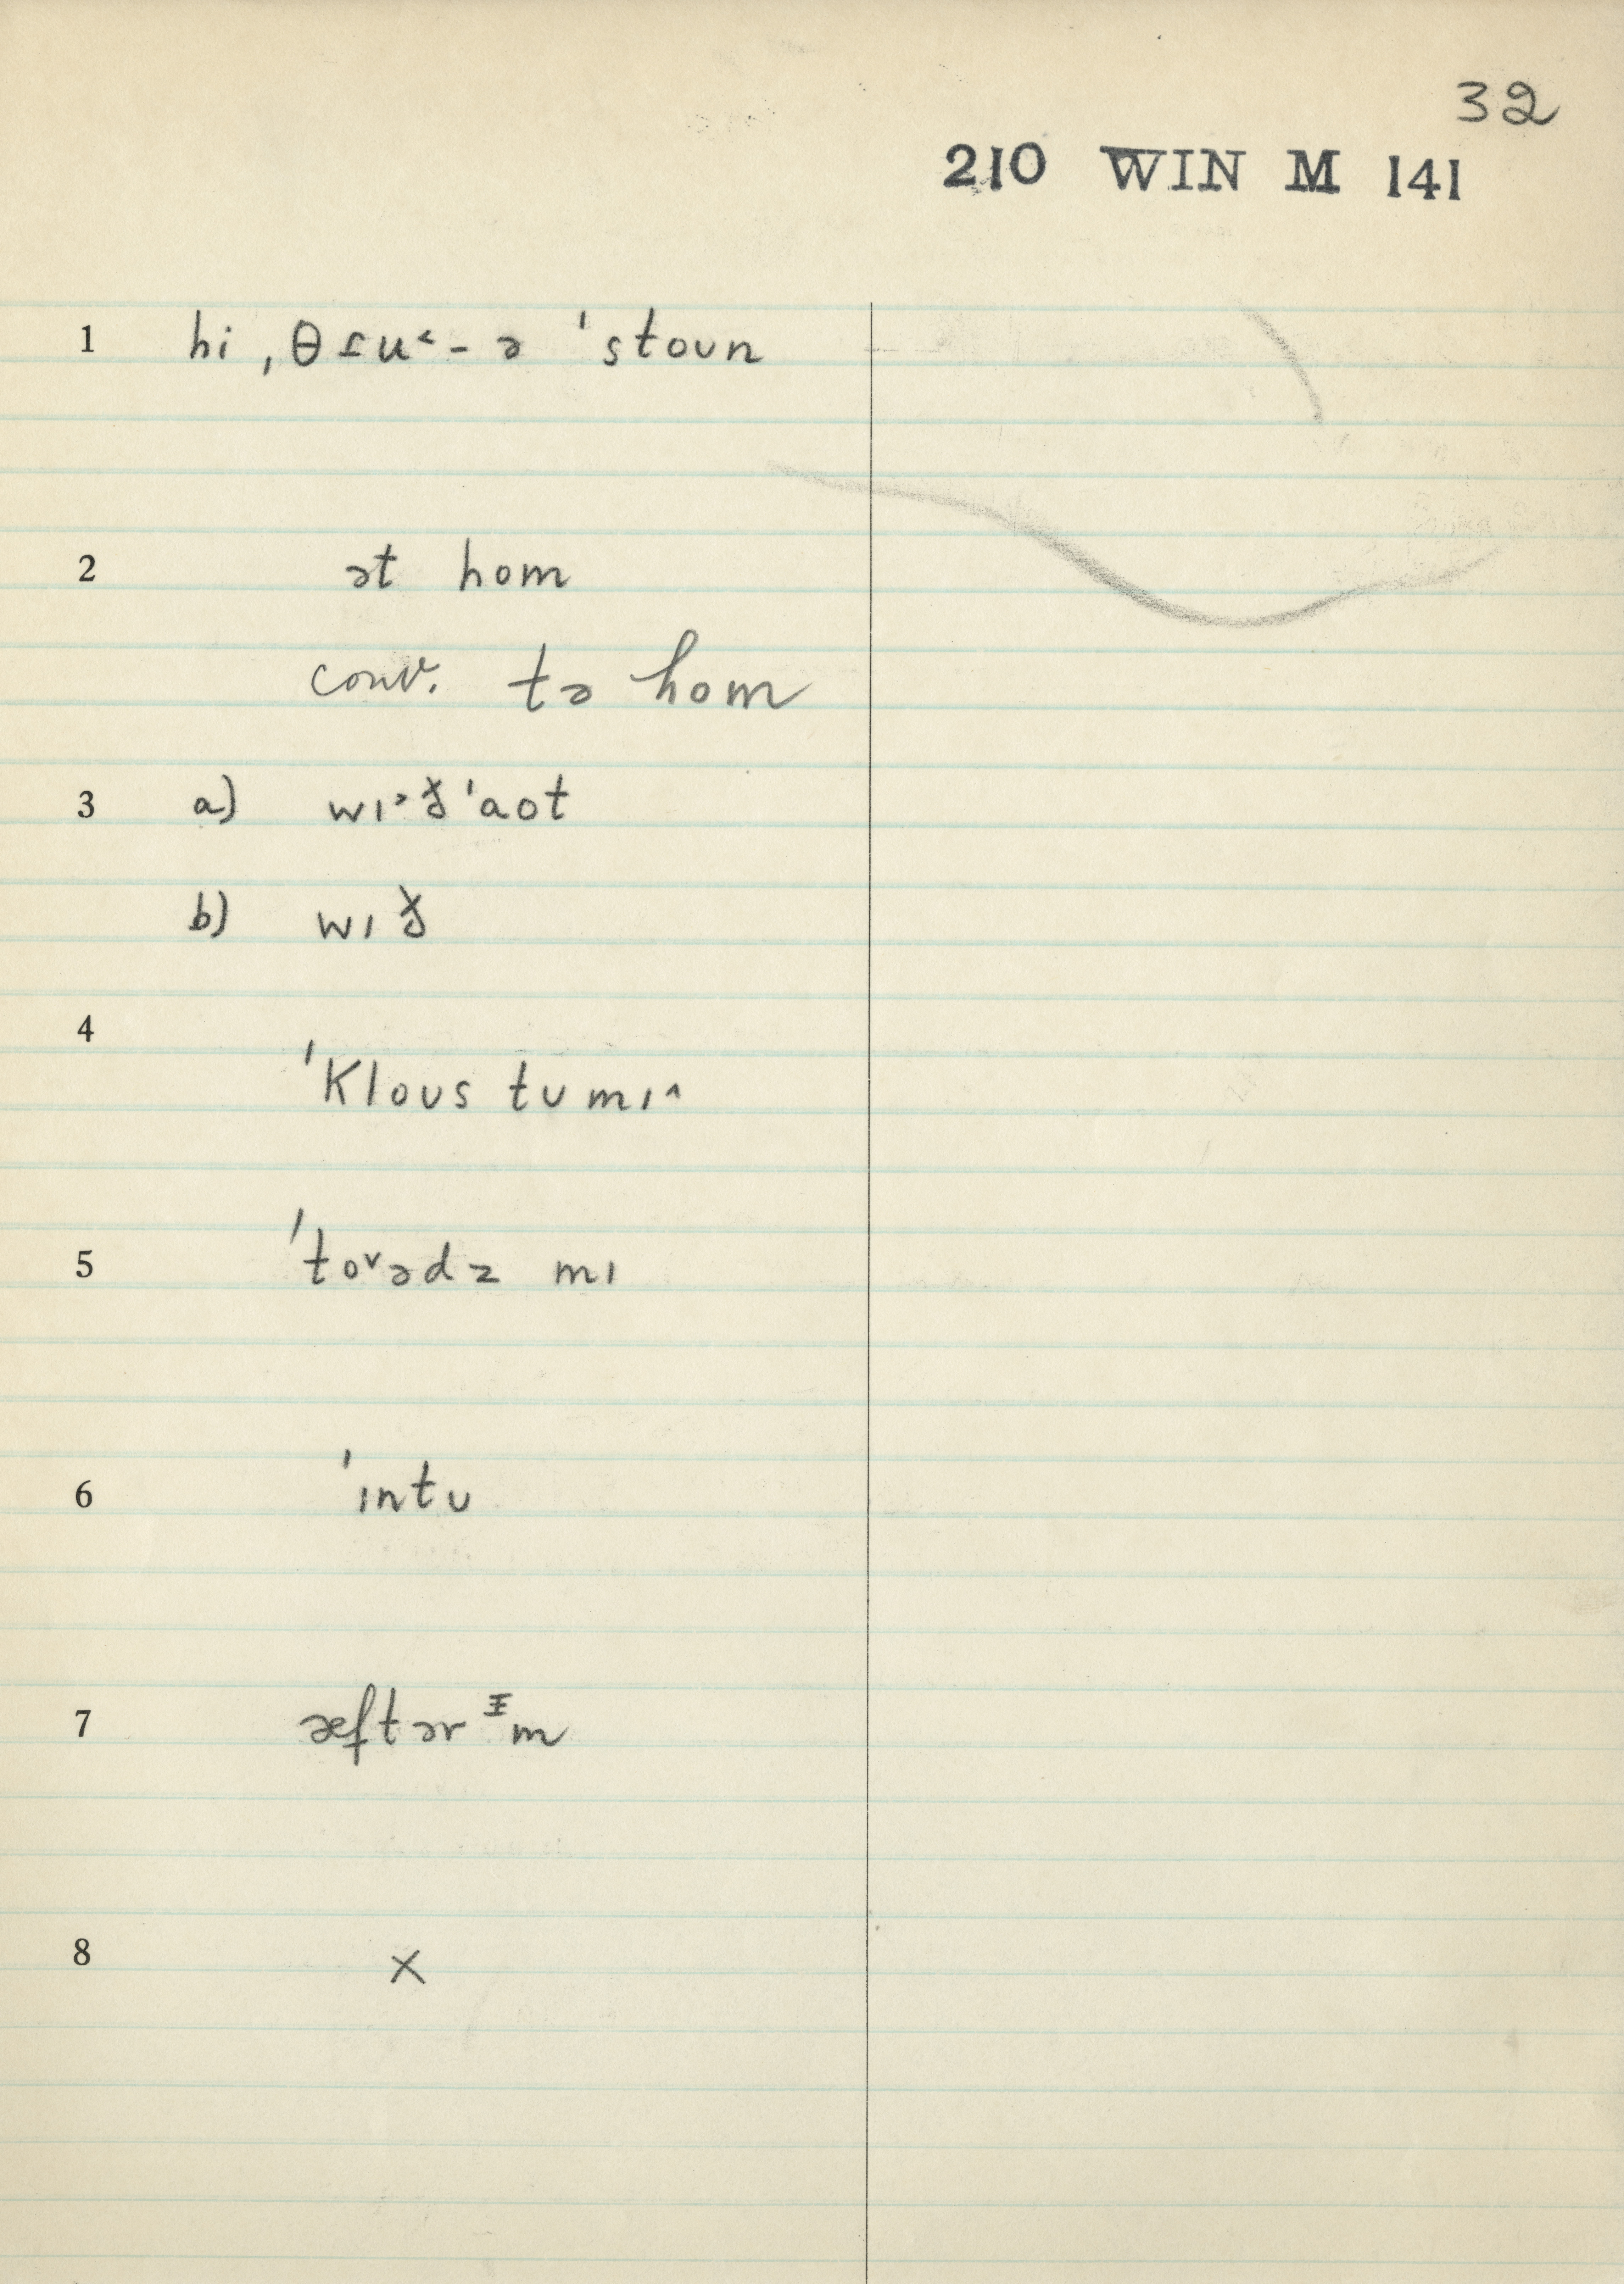 32
210 WIN M 141
1 hi ˌθɾu˂ - ə ˈstoʊn
2 ət hom
conv. tə hom
3 a) wɪ˃ð̯ ˈaot
b) wɪð̯
4 ˈkloʊs tʊ mɪ˄
5 ˈto˅ədz mɪ
6 ˈɪntʊ
7 æftər ɪm
8 ×